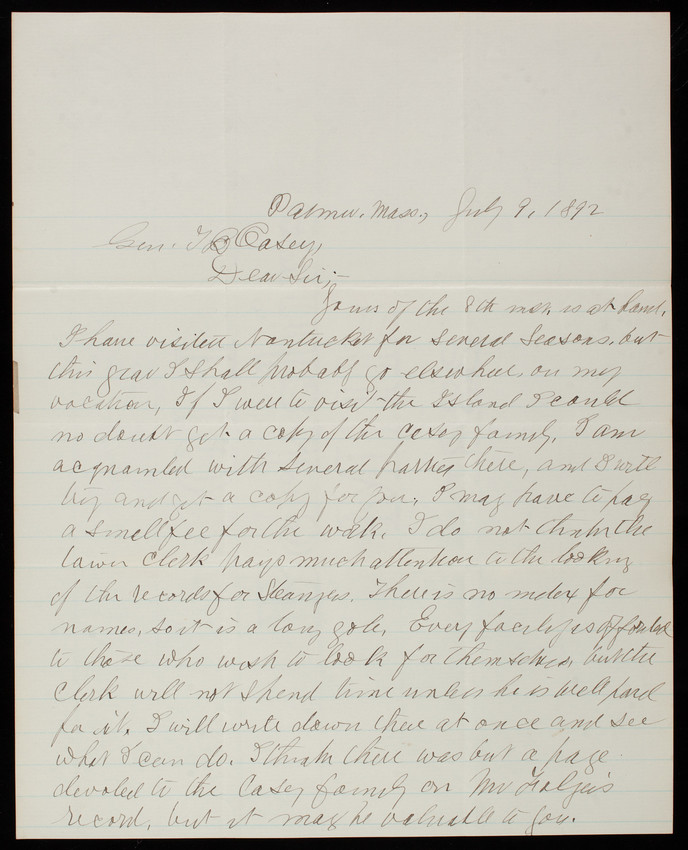 Palmer. Mass., July 9, 1892
Gen. T L Casey,
Dear Sir;-
Yours of the 8th inst. is at hand.
I have visited Nantucket for several seasons. but
this year I shall probably go elsewhere on my
vacation, If I were to visit the Island I could
no doubt get a copy of the Casey family. I am
acquainted with several parties there, and I will
try and get a copy for you, I may have to pay
a small fee for the work. I do not think the
town clerk pays much attention to the looking
of the records for strangers. There is no index for
names, so it is a long job. Every facility is afforded
to those who wish to look for themselves, but the
clerk will not spend time unless he is well paid
for it. I will write down there at once and see
what I can do. I think there was but a page
devoted to the Casey family on Mr Folger's
record, but it may be valuable to you.